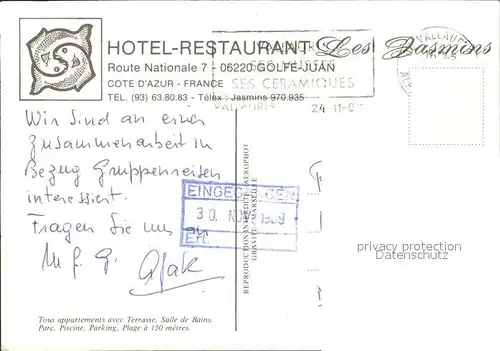 HOTEL-RESTAURANT Les Jasmins
Route Nationale 7 - 06220 GOLFE-JUAN
COTE D'AZUR - FRANCE
SES CERAMIQUES
TEL. (93) 63.80.83 - Télex: Jasmins 970.935
24-11-8
Wir sind an einer
Zusammenarbeit in
Bezug Gruppenreisen
interessiert.
Fragen Sie uns an
M f. G.
EINGEGANGEN
30. NOV. 1989
Erl.
REPRODUCTION INTERDITE - AEROPHOT
GRAVITE - MARSEILLE
privacy protection
Datenschutz
Tous appartements avec Terrasse, Salle de Bains.
Parc, Piscine, Parking, Plage à 150 mètres.